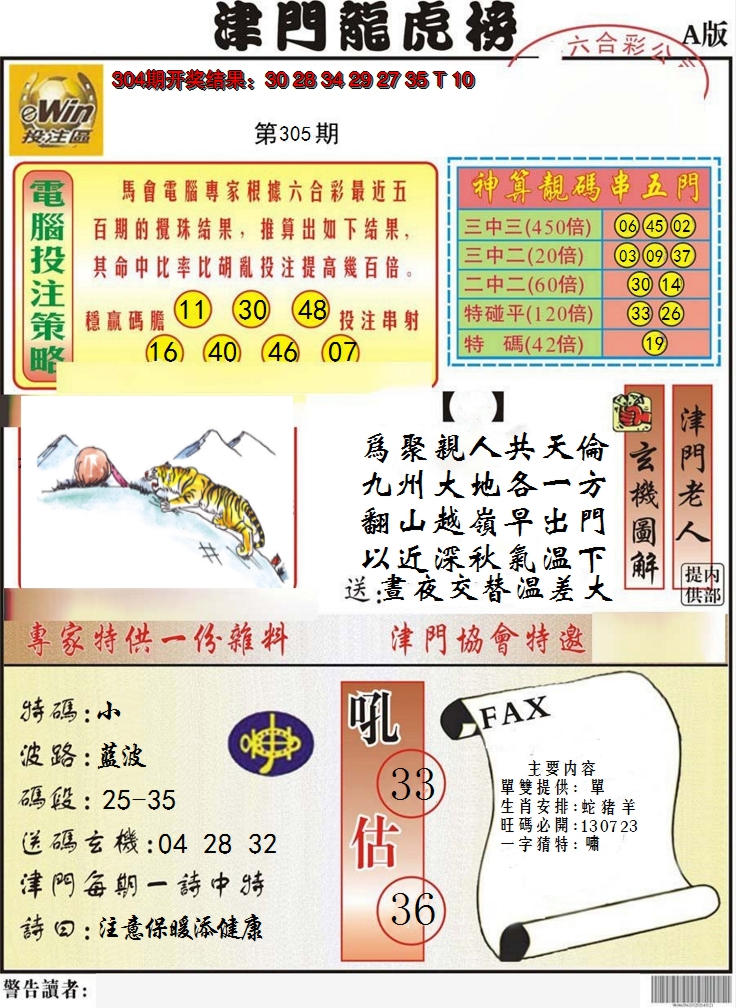 津門龍虎榜
A版
六合彩公
304期开奖结果：30 28 34 29 27 35 T 10
eWin
投注區
第305期
電腦投注策略
馬會電腦專家根據六合彩最近五
百期的攪珠结果，推算出如下结果，
其命中比率比胡亂投注提高幾百倍。
穩赢碼膽 11 30 48 投注串射
16 40 46 07
神算靚碼串五門
三中三(450倍) 06 45 02
三中二(20倍) 03 09 37
二中二(60倍) 30 14
特碰平(120倍) 33 26
特 碼(42倍) 19
【 】
爲聚親人共天倫
九州大地各一方
翻山越嶺早出門
以近深秋氣温下
送:晝夜交替温差大
玄機圖解
津門老人
内部提供
專家特供一份雜料
津門協會特邀
特碼:小
波路:藍波
碼段:25-35
送碼玄機:04 28 32
津門每期一詩中特
詩曰:注意保暖添健康
吼
33
估
36
FAX
主要内容
單雙提供:單
生肖安排:蛇豬羊
旺碼必開:130723
一字猜特:嘯
警告讀者: